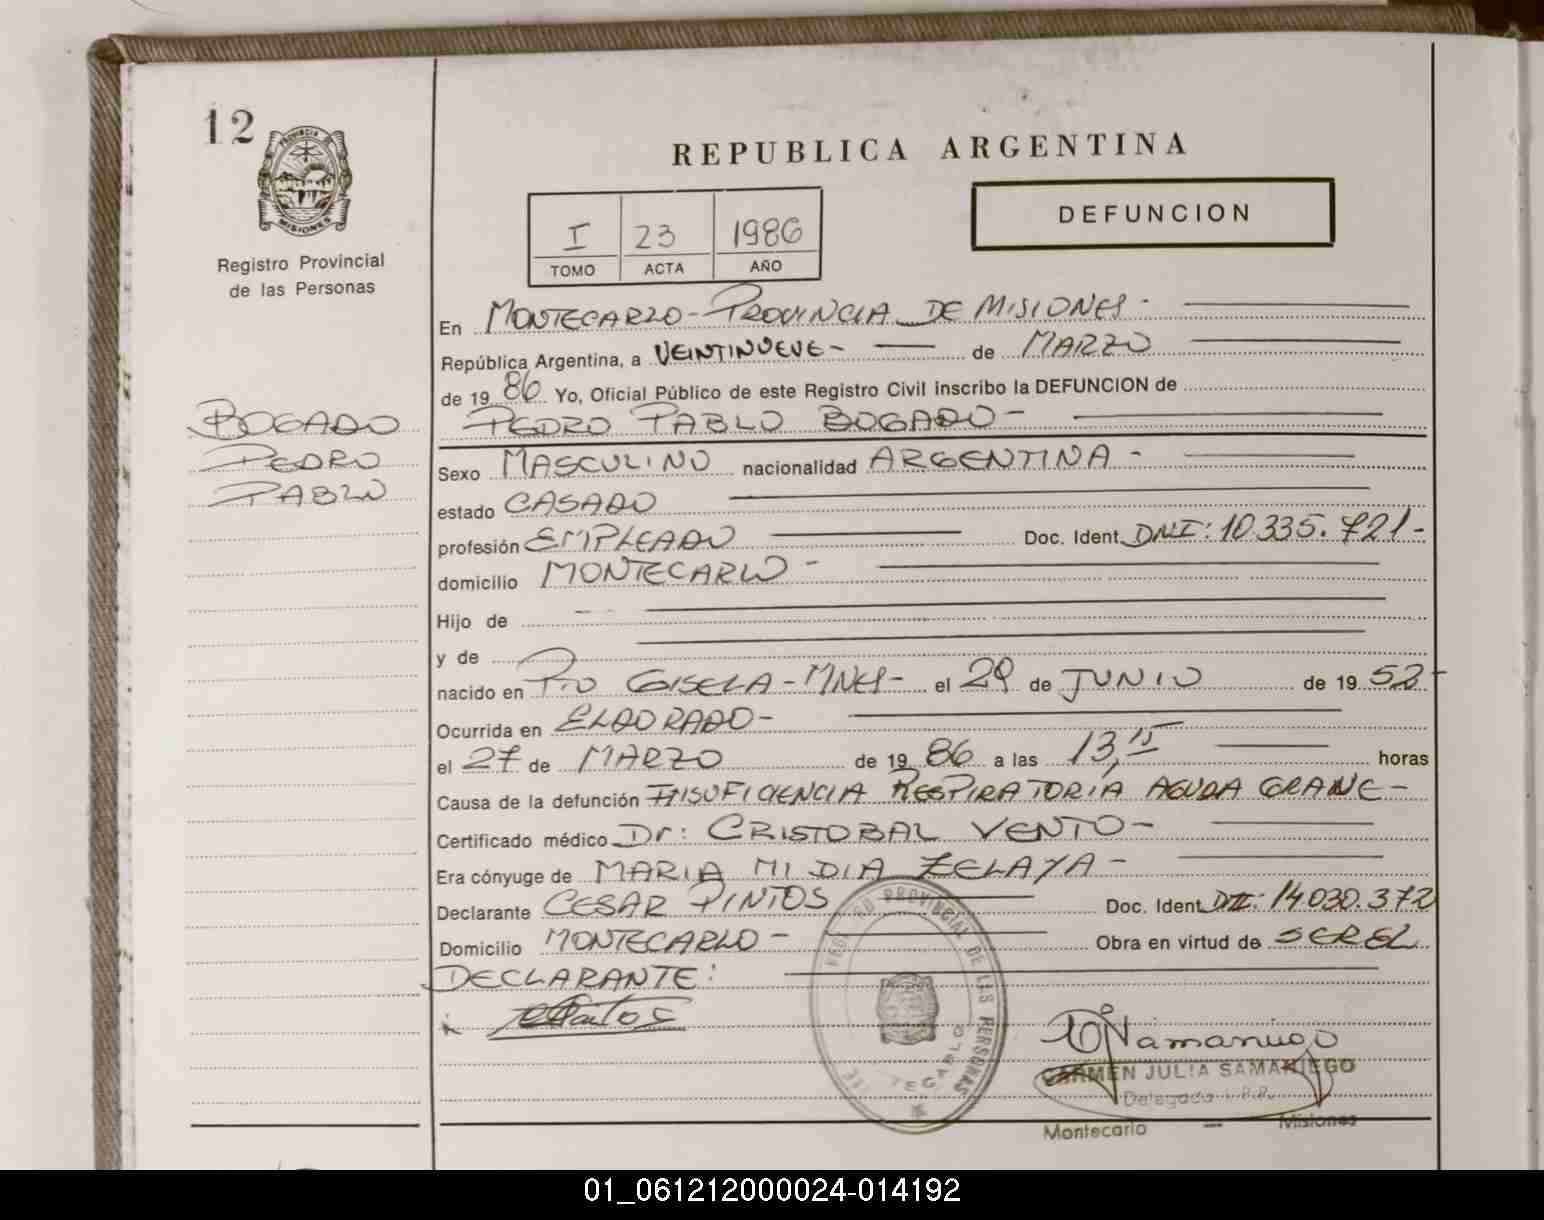 12
PROVINCIA DE
MISIONES
Registro Provincial
de las Personas
REPUBLICA ARGENTINA
I 23 1986
TOMO ACTA AÑO
DEFUNCION
En MONTECARLO - PROVINCIA DE MISIONES -
República Argentina, a VEINTINUEVE - de MARZO
de 19 86 Yo, Oficial Público de este Registro Civil inscribo la DEFUNCION de
PEDRO PABLO BOGADO -
BOGADO
PEDRO
PABLO
Sexo MASCULINO nacionalidad ARGENTINA -
estado CASADO
profesión EMPLEADO Doc. Ident. DNI: 10.335.721 -
domicilio MONTECARLO -
Hijo de
y de
nacido en Pto GISELA - MNES - el 29 de JUNIO de 19 52 -
Ocurrida en ELDORADO -
el 27 de MARZO de 19 86 a las 13,15 horas
Causa de la defunción INSUFICIENCIA RESPIRATORIA AGUDA GRAVE -
Certificado médico Dr: CRISTOBAL VENTO -
Era cónyuge de MARIA NIDIA ZELAYA -
Declarante CESAR PINTOS Doc. Ident. DNI: 14.030.372
Domicilio MONTECARLO - Obra en virtud de SEREL
DECLARANTE:
REGISTRO PROVINCIAL DE LAS PERSONAS
CARMEN JULIA SAMANIEGO
Delegada R.P.P.
Montecarlo - Misiones
01_061212000024-014192